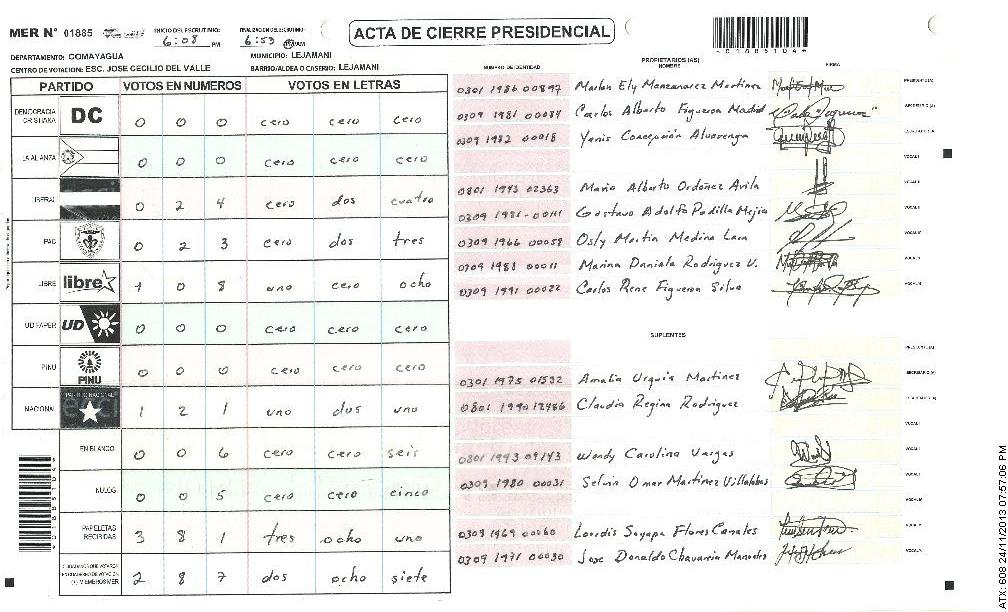 MER N° 01885
INICIO DEL ESCRUTINIO: 6:08 PM
FINALIZACION DEL ESCRUTINIO: 6:53 PM
ACTA DE CIERRE PRESIDENCIAL
DEPARTAMENTO: COMAYAGUA
MUNICIPIO: LEJAMANI
CENTRO DE VOTACION: ESC. JOSE CECILIO DEL VALLE
BARRIO/ALDEA O CASERIO: LEJAMANI
PARTIDO VOTOS EN NUMEROS VOTOS EN LETRAS
DEMOCRACIA CRISTIANA DC 0 0 0 cero cero cero
LA ALIANZA 0 0 0 cero cero cero
LIBERAL 0 2 4 cero dos cuatro
PAC 0 2 3 cero dos tres
LIBRE libre 1 0 8 uno cero ocho
UD FAPER UD 0 0 0 cero cero cero
PINU PINU 0 0 0 cero cero cero
NACIONAL PARTIDO NACIONAL 1 2 1 uno dos uno
EN BLANCO 0 0 6 cero cero seis
NULOS 0 0 5 cero cero cinco
PAPELETAS RECIBIDAS 3 8 1 tres ocho uno
CIUDADANOS QUE VOTARON EN CUADERNO DE VOTACION (+) MIEMBROS MER 2 8 7 dos ocho siete
PROPIETARIOS (AS)
NUMERO DE IDENTIDAD NOMBRE FIRMA
0301 1986 00897 Marlon Ely Manzanarez Martinez PRESIDENTE(A)
0309 1981 00084 Carlos Alberto Figueroa Madrid SECRETARIO (A)
0309 1982 00018 Yenis Concepción Alvarenga ESCRUTADOR(A)
VOCAL I
0801 1993 02363 Mario Alberto Ordoñez Avila
Gustavo Adolfo Padilla Mejia
0309 1966 00059 Osly Martin Medina Lara
Marina Daniela Rodriguez V.
0309 1991 00022 Carlos Rene Figueroa Silva
SUPLENTES
PRESIDENTE(A)
0301 1975 01532 Amalia Urquia Martinez SECRETARIO (A)
0801 1990 12486 Claudia Regina Rodriguez ESCRUTADOR(A)
VOCAL I
0801 1993 09143 Wendy Carolina Vargas
0309 1980 00031 Selvin Omar Martinez Villalobos
0309 1969 00060 Lourdis Suyapa Flores Canales
0309 1971 00030 Jose Donaldo Chavarria
ATX: 608 24/11/2013 07:57:06 PM